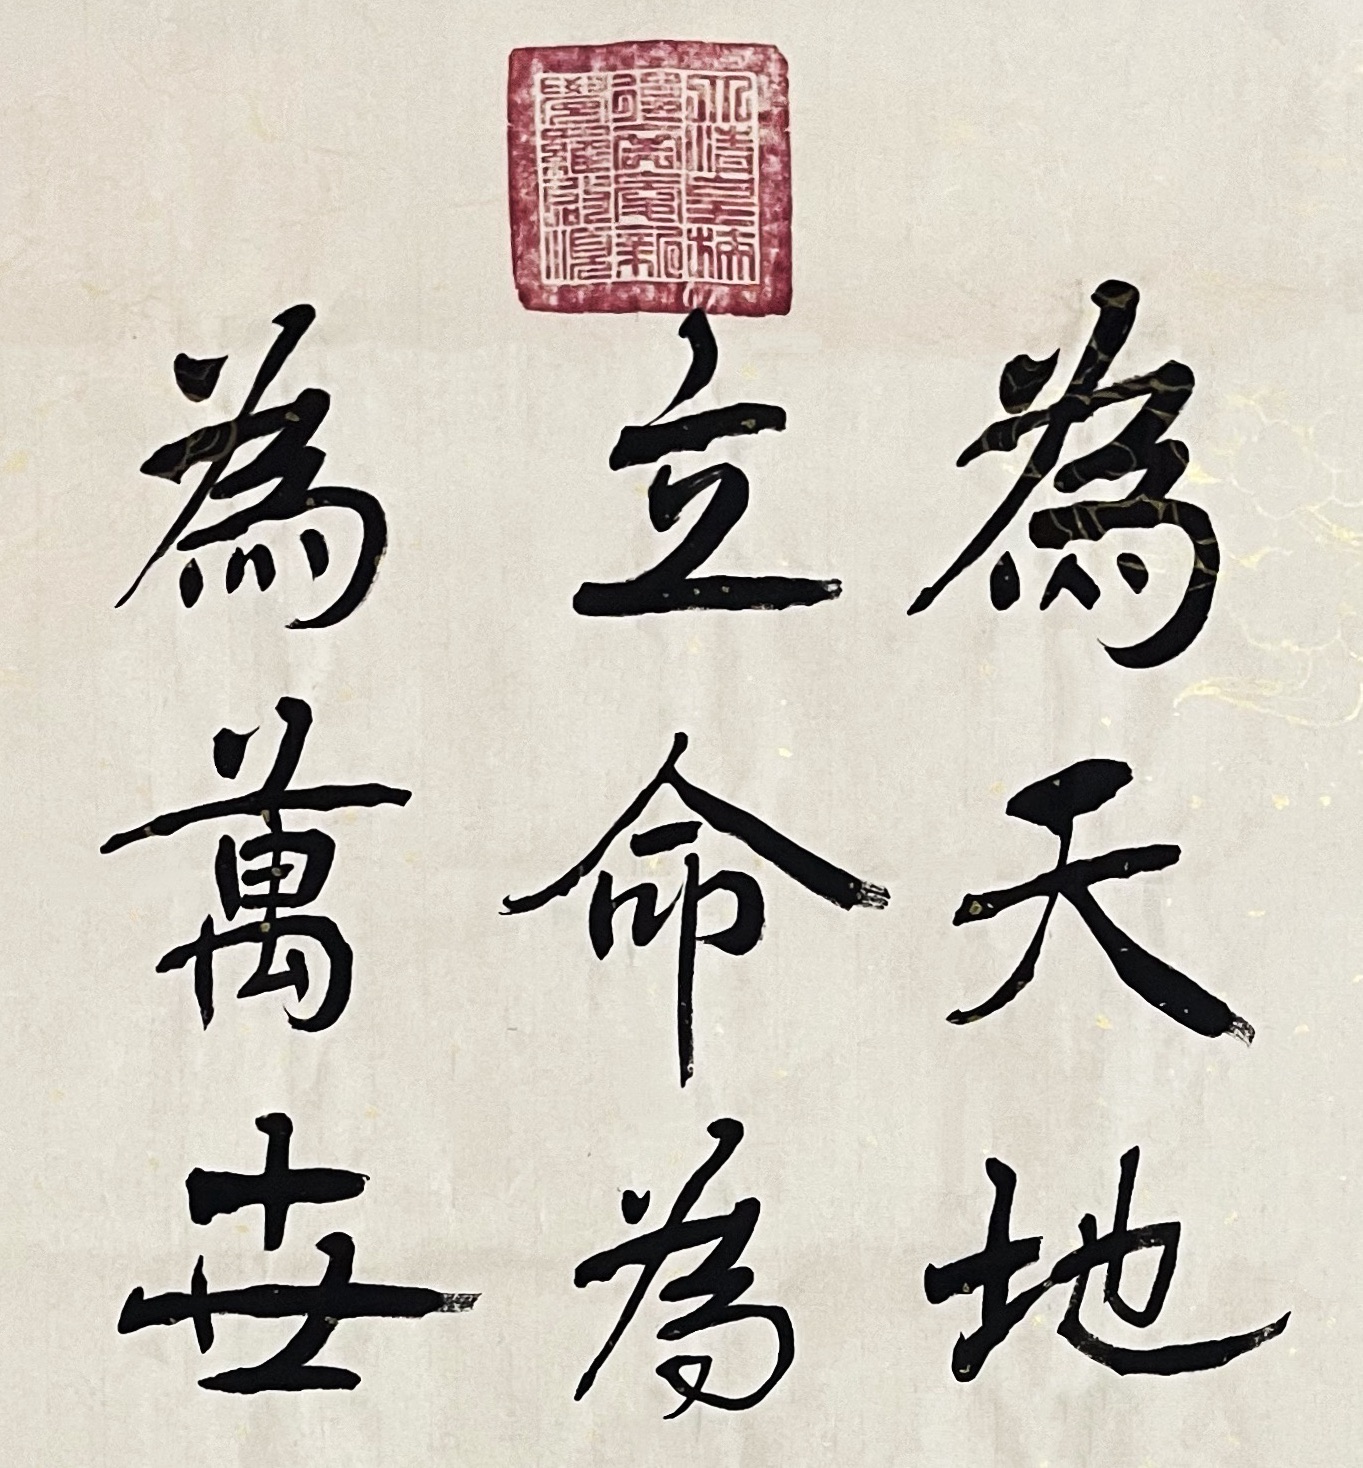 為天地
立命為
為萬世